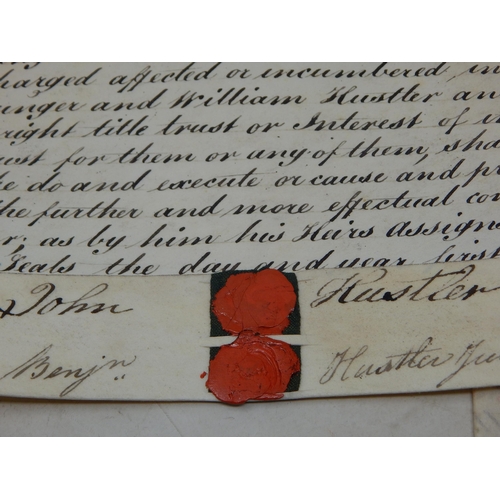 charged affected or incumbered in
unger and William Hustler an
right title trust or Interest of in
ust for them or any of them, sha
do and execute or cause and pr
the further and more effectual con
as by him his Heirs Assigns
Seals the day and year first
John Hustler
Benjn Hustler Jun